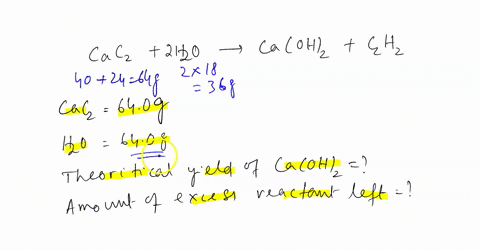 CaC₂ + 2H₂O → Ca(OH)₂ + C₂H₂
40+24=64g 2×18
=36g
CaC₂ = 64.0g
H₂O = 64.0g
Theoritical yield of Ca(OH)₂ =?
Amount of excess reactant left =?